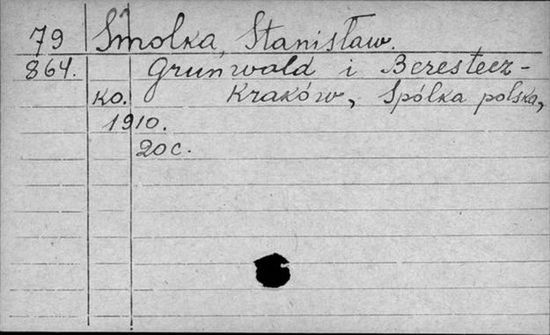 79 Smolka, Stanisław.
864. Grunwald i Berestecz-
ko. Kraków, Spólka polska,
1910.
20 c.